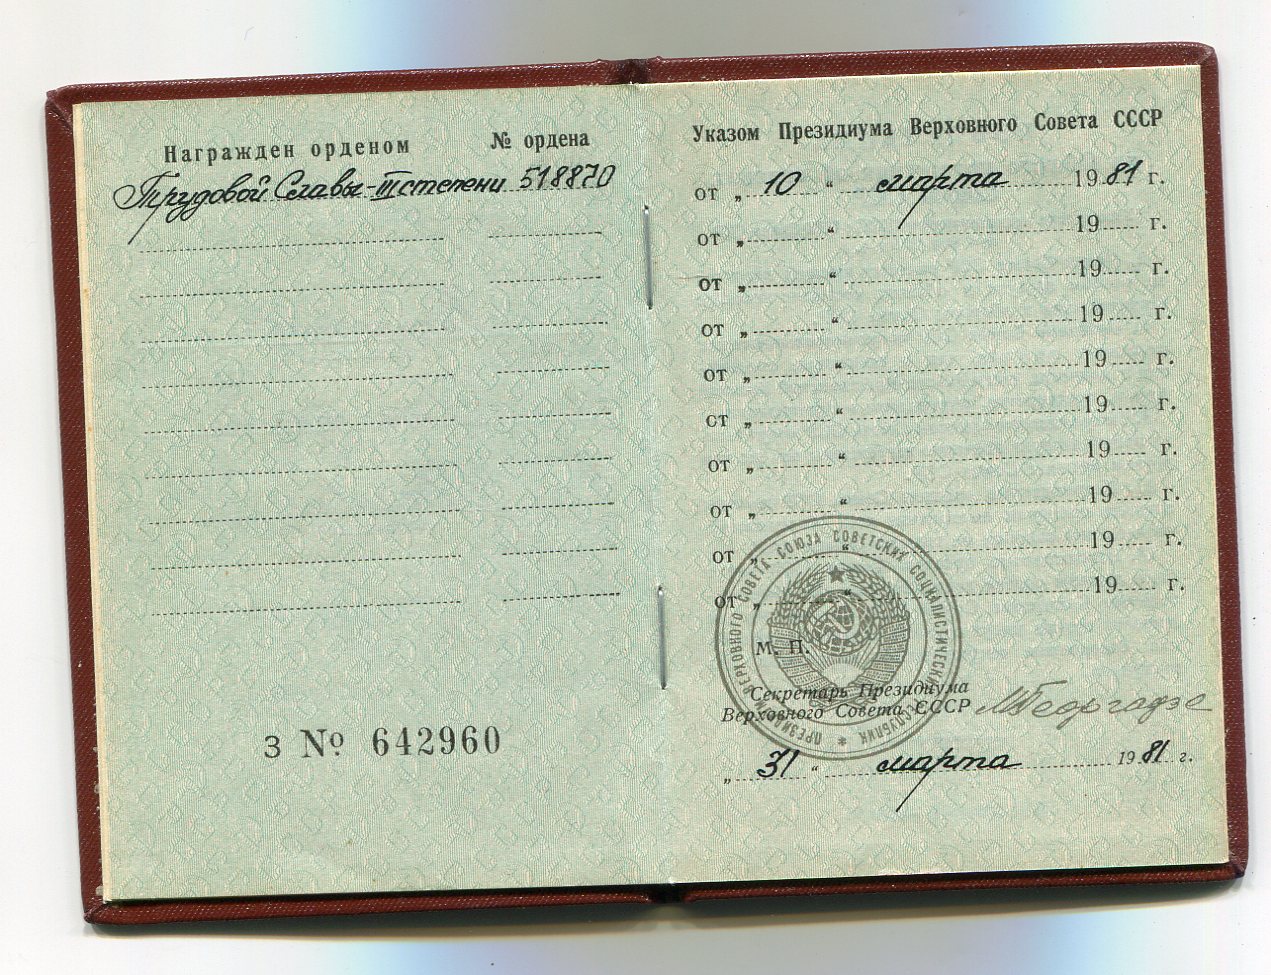 Награжден орденом № ордена
Трудовой Славы-III степени 518870
З № 642960
Указом Президиума Верховного Совета СССР
от „ 10 “ марта 1981 г.
от „ “ 19 г.
от „ “ 19 г.
от „ “ 19 г.
от „ “ 19 г.
от „ “ 19 г.
от „ “ 19 г.
от „ “ 19 г.
от „ “ 19 г.
от „ “ 19 г.
ПРЕЗИДИУМ ВЕРХОВНОГО СОВЕТА СОЮЗА СОВЕТСКИХ СОЦИАЛИСТИЧЕСКИХ РЕСПУБЛИК
М. П.
Секретарь Президиума
Верховного Совета СССР МГеоргадзе
„ 31 “ марта 1981 г.